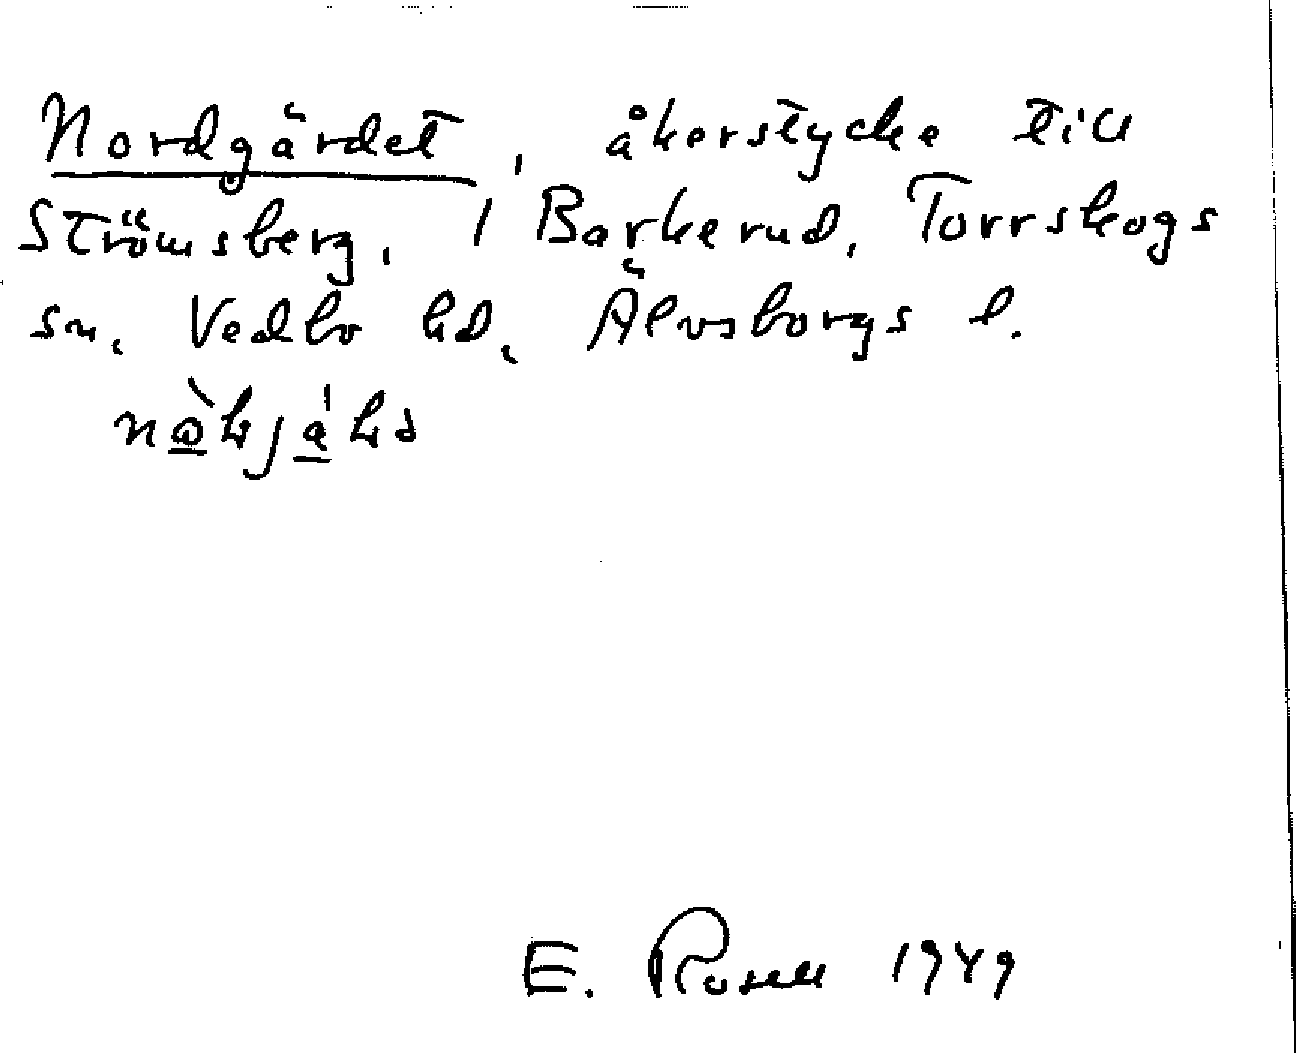 Nordgärdet, åkerstycke till
Strömsberg, 1 Barkerud, Torrskogs
sn, Vedbo hd, Älvsborgs l.
E. Rosell 1949